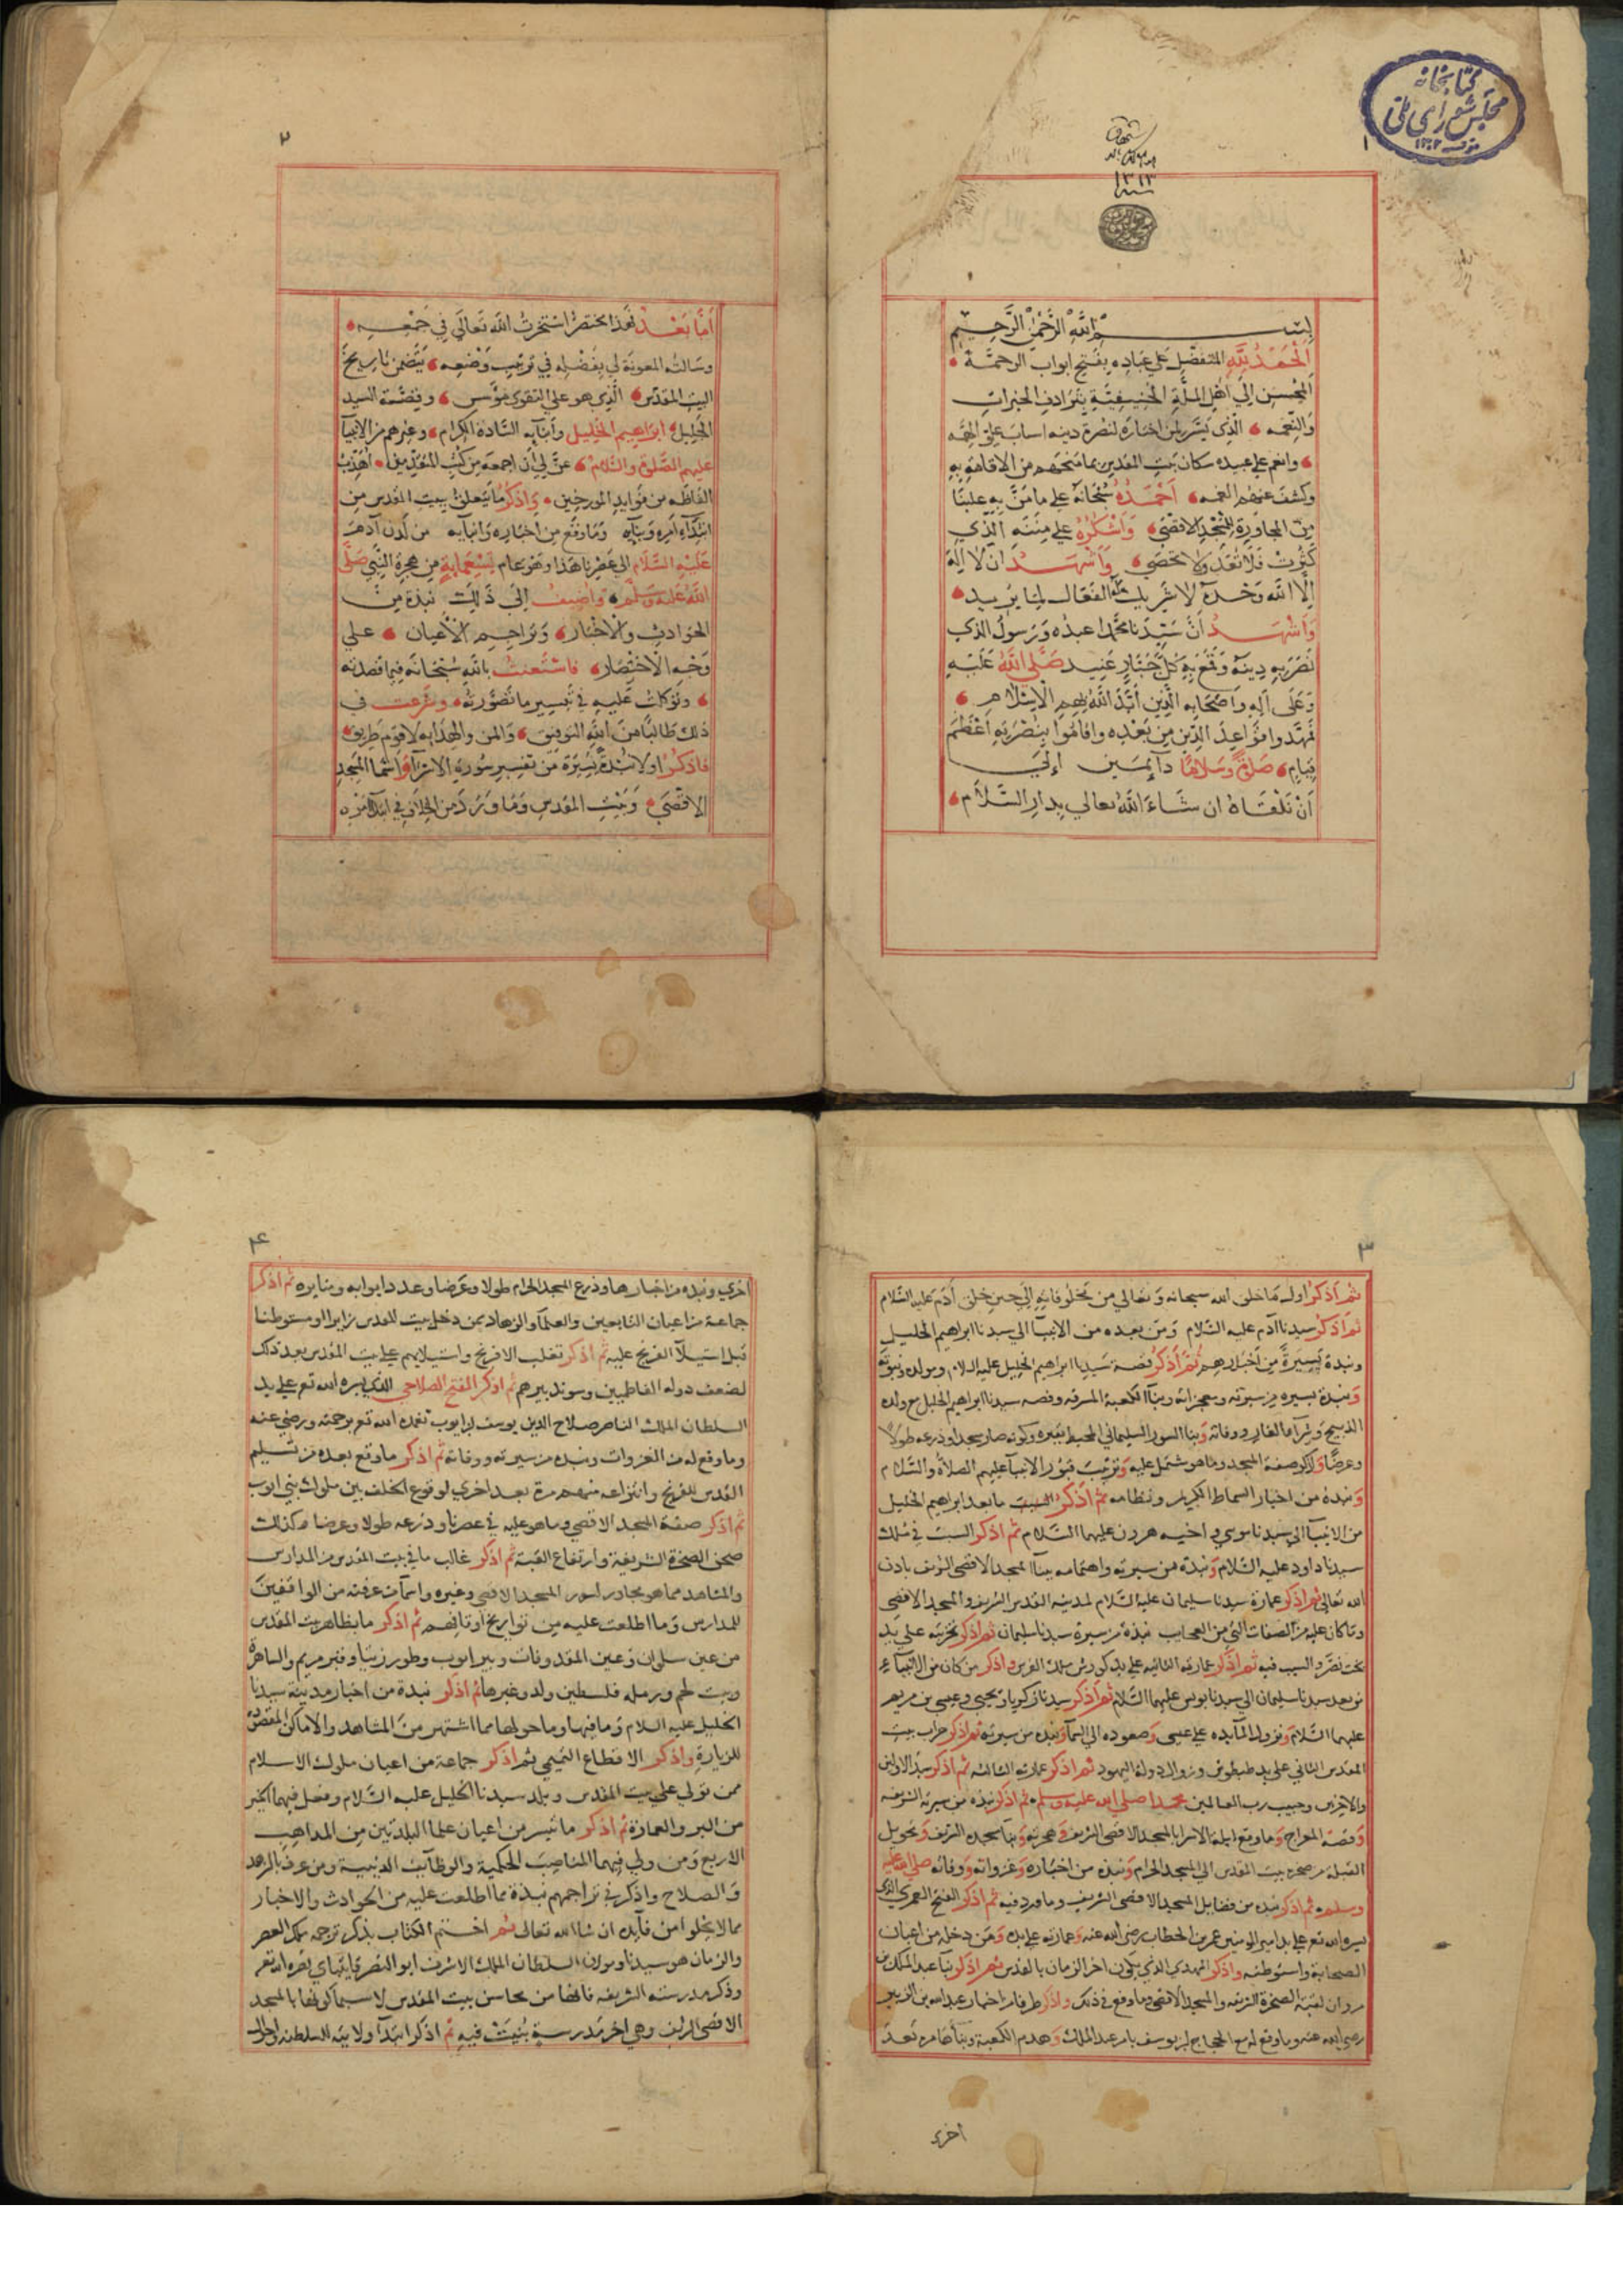 كتابخانه
مجلس شورای ملی
١
١٣١٣
بسم الله الرحمن الرحيم
الحمد لله المتفضل على عباده بفتح ابواب الرحمة
المحسن الى اهل الملة الحنيفية بترادف الخيرات
والنعمه الذى يسر لمن اختاره لنصرة دينه اسباب علو الهمه
وانعم على عبيده سكان بيت المقدس بما منحهم من الاقامة به
وكشف عنهم الغمه احمده سبحانه على ما من به علينا
من المجاورة للمسجد الاقصى واشكره على مننه الذي
كثرت فلا تعد ولا تحصى واشهد ان لا اله
الا الله وحده لا شريك له الفعال لما يريد
واشهد أن سيدنا محمدا عبده ورسوله الذي
نصر به دينه وقمع به كل جبار عنيد صلى الله عليه
وعلى آله واصحابه الذين أيد الله بهم الاسلام
فمهدوا قواعد الدين من بعده وقاموا بنصرته اعظم
قيام صلاة وسلاما دايمين إلى
أن نلقاه ان شاء الله تعالى بدار السلام
٢
أما بعد فهذا مختصر استخرت الله تعالى في جمعه
وسالته المعونة لي بفضله في ترتيب وضعه يتضمن تاريخ
البيت المقدس الذي هو على التقوى مؤسس وقصة السيد
الجليل ابراهيم الخليل وأبنايه السادة الكرام وغيرهم من الانبيآ
عليهم الصلوة والسلام عن لي أن اجمعه من كتب المتقدمين اهذب
الفاظه من فوايد المورخين واذكر ما يتعلق ببيت المقدس من
ابتدآء امره وبنايه وما وقع من اخباره وانبايه من لدن آدم
عليه السلام الى عصرنا هذا وهو عام تسعماية من هجرة النبي صلى
الله عليه وسلم واضيف إلى ذلك نبذة من
الحوادث والاخبار وتراجم الأعيان على
وجه الاختصار فاستعنت بالله سبحانه فيما قصدته
وتوكلت عليه في تيسير ما تصورته وشرعت في
ذلك طالبا من الله التوفيق والمن والهداية لاقوم طريق
فاذكر اولا نبذة يسيرة من تفسير سورة الاسرآ واسما المسجد
الاقصى وبيت المقدس وما ورد من الخلاف في ابتدآ امره
٣
ثم أذكر اول ما خلق الله سبحانه وتعالى من مخلوقاته إلى حين خلق أدم عليه السلام
ثم اذكر سيدنا آدم عليه السلام ومن بعده من الانبيآ الى سيدنا ابراهيم الخليل
ونبذة يسيرة من أخبارهم ثم أذكر قصة سيدنا ابراهيم الخليل عليه السلام ومولده ونبوته
ونبذة يسيره من سيرته ومعجزاته وبنآ الكعبة المشرفه وقصه سيدنا ابراهيم الخليل مع ولده
الذبيح وشرآه الغار ووفاته وبنا السور السليماني المحيط بقبره وكونه صار مسجدا وذرعه طولا
وعرضا واذكر صفة المسجد وما هو مشتمل عليه وترتيب قبور الانبيآ عليهم الصلاة والسلام
ونبذة من اخبار السماط الكريم ونظامه ثم اذكر السبب ما بعد ابراهيم الخليل
من الانبيآ الى سيدنا موسى واخيه هرون عليهما السلام ثم اذكر السبب في ملك
سيدنا داود عليه السلام ونبذة من سيرته واهتمامه ببنآ المسجد الاقصى الشريف باذن
الله تعالى ثم اذكر عمارة سيدنا سليمان عليه السلام لمدينة القدس الشريف والمسجد الاقصى
وما كان عليه من الصفات التي من العجايب نبذة من سيرة سيدنا سليمان ثم اذكر تخريبه على يد
بخت نصر والسبب فيه ثم اذكر عمارته الثانيه على يد كورش ملك الفرس واذكر من كان من الانبيآء
من بعد سيدنا سليمان الى سيدنا يونس عليهما السلام ثم اذكر سيدنا زكريا ويحيى وعيسى بن مريم
عليهما السلام ونزول المآيده على عيسى وصعوده الى السمآ ونبذه من سيرته ثم اذكر خراب بيت
المقدس الثاني على يد طيطوش وزوال دولة اليهود ثم اذكر عمارته الثالثه ثم اذكر سيد الاولين
والاخرين وحبيب رب العالمين محمدا صلى الله عليه وسلم ثم اذكر نبذه من سيرته الشريفه
وقصة المعراج وما وقع ليلة الاسرا بالمسجد الاقصى الشريف وهجرته وبنآ مسجده الشريف وتحويل
القبلة من صخرة بيت المقدس الى المسجد الحرام ونبذه من اخباره وغزواته ووفاته صلى الله عليه
وسلم ثم اذكر نبذه من فضايل المسجد الاقصى الشريف وما ورد فيه ثم اذكر الفتح العمري الذي
يسره الله تع على يد امير المومنين عمر بن الخطاب رضي الله عنه وعمارته على يده ومن دخله من اعيان
الصحابة واستوطنه واذكر المهدي الذي يكون اخر الزمان بالقدس ثم اذكر بنآ عبد الملك بن
مروان لقبة الصخرة الشريفه والمسجد الاقصى وما وقع في ذلك واذكر طرفا من اخبار عبد الله بن الزبير
رضي الله عنه وما وقع له مع الحجاج بن يوسف بامر عبد الملك وهدم الكعبة وبنآها مره بعد
اخرى
۴
اخرى ونبذه من اخبارها وذرع المسجد الحرام طولا وعرضا وعدد ابوابه ومنايره ثم اذكر
جماعة من اعيان التابعين والعلمآ والزهاد ممن دخل بيت المقدس زايرا او مستوطنا
قبل استيلآ الفرنج عليه ثم اذكر تغلب الافرنج واستيلايهم على بيت المقدس بعد ذلك
لضعف دولة الفاطميين وسوء تدبيرهم ثم اذكر الفتح الصلاحي الذي يسره الله تع على يد
السلطان الملك الناصر صلاح الدين يوسف بن ايوب تغمده الله تع برحمته ورضي عنه
وما وقع له من الغزوات ونبذه من سيرته ووفاته ثم اذكر ما وقع بعده من تسليم
القدس للفرنج وانتزاعه منهم مرة بعد اخرى لوقوع الخلف بين ملوك بني ايوب
ثم اذكر صفة المسجد الاقصى وما هو عليه في عصرنا وذرعه طولا وعرضا وكذلك
صحن الصخرة الشريفة وارتفاع القبة ثم اذكر غالب ما في بيت المقدس من المدارس
والمشاهد مما هو مجاور لسور المسجد الاقصى وغيره واسمآ من عرفته من الواقفين
للمدارس وما اطلعت عليه من تواريخ اوقافهم ثم اذكر ما بظاهر بيت المقدس
من عين سلوان وعين المقذوفات وبير ايوب وطور زيتا وقبر مريم والساهرة
وبيت لحم ورمله فلسطين ولد وغيرها ثم اذكر نبذة من اخبار مدينة سيدنا
الخليل عليه السلام وما فيها وما حولها مما اشتهر من المشاهد والاماكن المقصوده
للزيارة واذكر الاقطاع التميمي ثم اذكر جماعة من اعيان ملوك الاسلام
ممن تولى على بيت المقدس وبلد سيدنا الخليل عليه السلام وفعل فيهما الخير
من البر والعمارة ثم اذكر ما تيسر من اعيان علما البلدتين من المذاهب
الاربع ومن ولي فيهما المناصب الحكمية والوظآيف الدينية ومن عرف بالزهد
والصلاح واذكر في تراجمهم نبذة مما اطلعت عليه من الحوادث والاخبار
مما لا يخلوا من فآيده ان شا الله تعالى ثم اختتم الكتاب بذكر ترجمه ملك العصر
والزمان هو سيدنا ومولانا السلطان الملك الاشرف ابو النصر قايتباي نصره الله تع
وذكر مدرسته الشريفه فانها من محاسن بيت المقدس لا سيما كونها بالمسجد
الاقصى الشريف وهي اخر مدرسة بنيت فيه ثم اذكر ابتدآ ولايته السلطنه واحوال